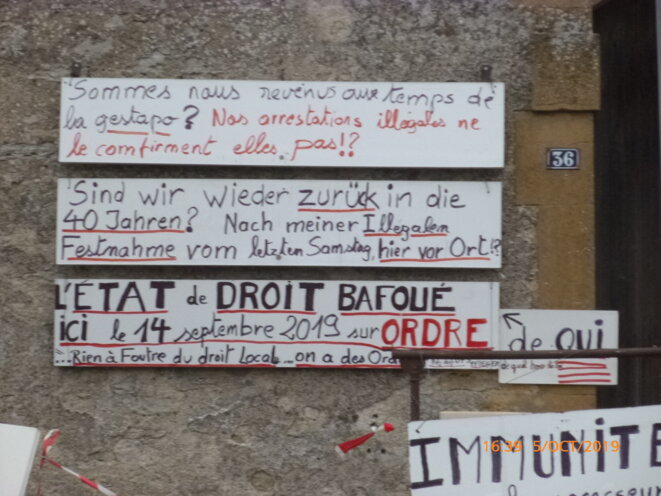 Sommes nous revenus aux temps de
la gestapo? Nos arrestations illégales ne
le comfirment elles pas!?
36
Sind wir wieder zurück in die
40 Jahren? Nach meiner Illegalem
Festnahme vom letzten Samstag, hier vor Ort!?
L'ÉTAT de DROIT BAFOUÉ
ici le 14 septembre 2019 sur ORDRE
de QUI
...Rien à Foutre du droit Local...on a des Ord
IMMUNITE
16:39 5/OCT/2019